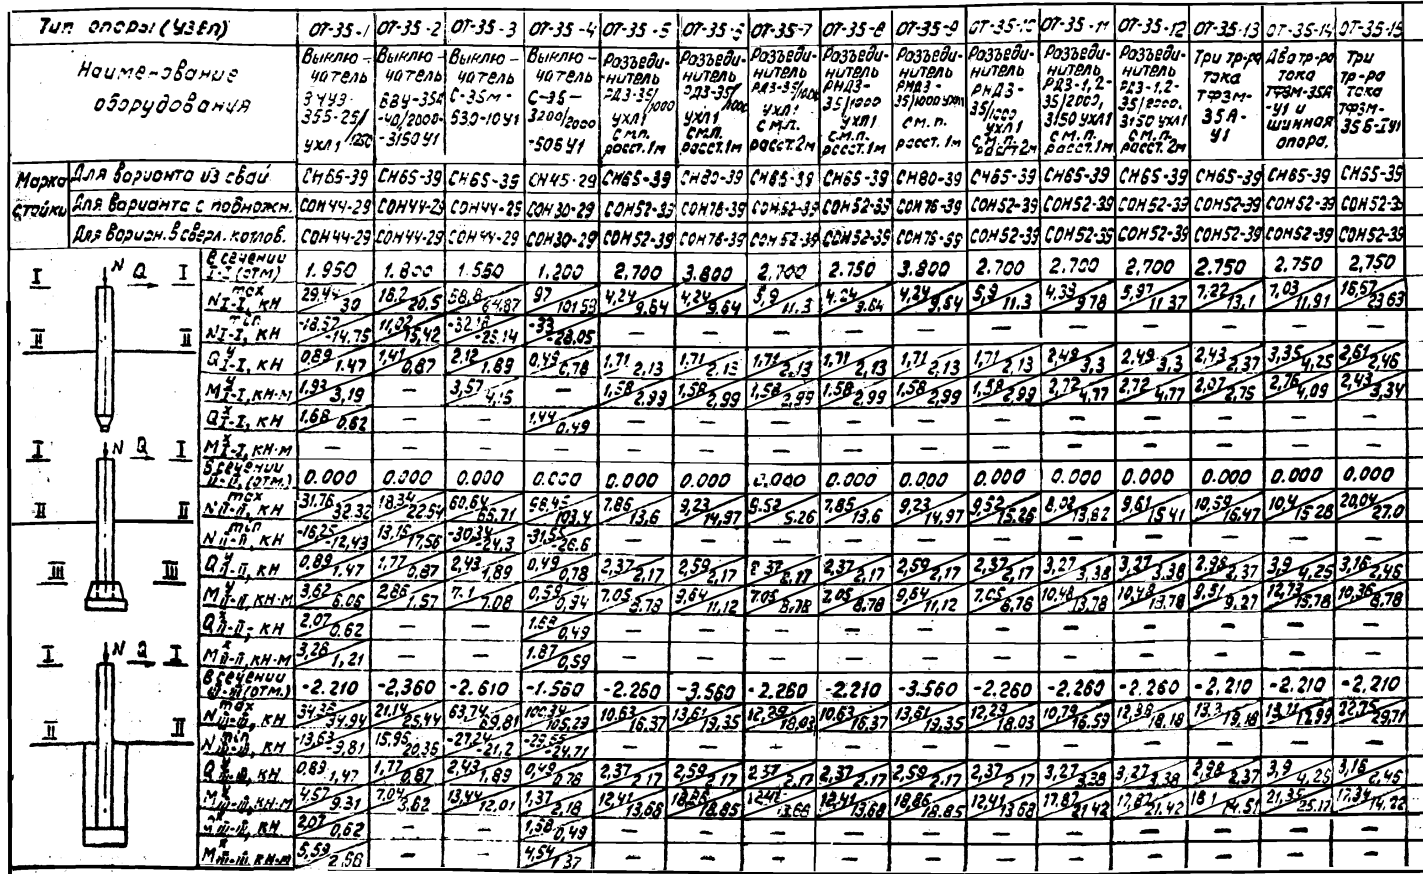 Тип опоры (узел) ОТ-35-1 ОТ-35-2 ОТ-35-3 ОТ-35-4 ОТ-35-5 ОТ-35-6 ОТ-35-7 ОТ-35-8 ОТ-35-9 ОТ-35-10 ОТ-35-11 ОТ-35-12 ОТ-35-13 ОТ-35-14 ОТ-35-15
Наименование
оборудования
Выключатель
УХЛ1
Выключатель
ВВУ-35А
-40/2000-
-3150У1
Выключатель
С-35М-
630-10У1
Выключатель
С-35-
3200/2000
-50БУ1
Разъединитель
РДЗ-35/1000
УХЛ1
с м.п.
расст.1м
Разъединитель
РДЗ-35/1000
УХЛ1
с м.п.
расст.1м
Разъединитель
РДЗ-35/1000
УХЛ1
с м.п.
расст.2м
Разъединитель
РНДЗ-
35/1000
УХЛ1
с м.п.
расст.1м
Разъединитель
РНДЗ-
35/1000 УХЛ1
с м.п.
расст.1м
Разъединитель
РНДЗ-
35/1000
УХЛ1
с м.п.
расст 2м
Разъединитель
РДЗ-1,2-
35/2000,
3150 УХЛ1
с м.п.
расст.1м
Разъединитель
РДЗ-1,2-
35/2000,
3150 УХЛ1
с м.п.
расст.2м
Три тр-ра
тока
ТФЗМ-
35А-
У1
Два тр-ра
тока
ТФЗМ-35А
-У1 и
шинная
опора.
Три
тр-ра
тока
ТФЗМ-
35Б-IУ1
Марка стойки
Для варианта из свай СН65-39 СН65-39 СН65-39 СН45-29 СН65-39 СН80-39 СН65-39 СН65-39 СН80-39 СН65-39 СН65-39 СН65-39 СН65-39 СН65-39 СН65-39
Для варианта с подножн. СОН44-29 СОН44-29 СОН44-29 СОН30-29 СОН52-39 СОН76-39 СОН52-39 СОН52-39 СОН76-39 СОН52-39 СОН52-39 СОН52-39 СОН52-39 СОН52-39 СОН52-39
Для вариан. в сверл. котлов. СОН44-29 СОН44-29 СОН44-29 СОН30-29 СОН52-39 СОН76-39 СОН52-39 СОН52-39 СОН76-39 СОН52-39 СОН52-39 СОН52-39 СОН52-39 СОН52-39 СОН52-39
В сечении I-I (отм) 1.950 1.800 1.560 1.200 2.700 3.800 2.700 2.750 3.800 2.700 2.700 2,700 2.750 2.750 2,750
N max I-I, кН 30 18,2/20,5 97 4,24/9.64 4,24/9.64 5,9/11.3 4.24/9.64 4,24/9,64 5,9/11.3 4,39/9.78 5,97/11.37 7,22/13,1 7,03/11,91 16,67/23,63
N min I-I, кН -18,57/-14,75 11,02/15,42 -33/-28,05 — — — — — — — — — — —
Q y I-I, кН 0,89/1.47 1,41/0,87 2,12/1.89 0,49/0,78 1,71/2,13 1,71/2,13 1,71/2,13 1,71/2,13 1,71/2,13 1,71/2,13 2,49/3,3 2,49/3,3 2,43/2,37 3,35/4,25 2,61/2,46
M y I-I, кН·м 1,93/3,19 — 3,57/4,15 — 1,58/2,99 1,58/2,99 1,58/2,99 1,58/2,99 1,58/2,99 1,58/2,99 2,72/4,77 2,72/4,77 2,07/2,75 2,76/4,09 2,43/3,34
Q x I-I, кН 1.68/0,62 — — 1,44/0,49 — — — — — — — — — — —
M x I-I, кН·м — — — — — — — — — — — — — — —
В сечении II-II, (отм.) 0.000 0.000 0.000 0.000 0.000 0.000 0.000 0.000 0.000 0.000 0.000 0.000 0.000 0.000 0.000
N max II-II, кН 31.76/32.32 18,34/22,54 60,64/65,71 103.4 7.86/13,6 9,23/14,97 9.52 7,85/13.6 9,23/14,97 9,52/15,26 8,02/13,82 9,61/15,41 10,59/16,47 10,4/15,28 20,04/27.0
N min II-II, кН -16,25/-12,43 13,15/17,56 -24,3 -31,55/-26.6 — — — — — — — — — — —
Q y II-II, кН 0,89/1.47 1,77/0,87 2,43/1,89 0,49/0,78 2,37/2,17 2,59/2,17 2,37/2,17 2,37/2,17 2,59/2,17 2,37/2,17 3,27/3,38 3,27/3.38 2,98/2,37 3,9/4,25 3,16/2,46
M y II-II, кН·м 3,62/6.06 2,86/1,57 7.1/7.08 0,59/0,94 7,05/8,78 9,64/11,12 7.05/8,78 7,05/8.78 9,64/11,12 7,05/8,78 10,48/13,78 10,48/13,78 9,51/9,27 12,73/15,78 10,36/8,78
Q x II-II, кН 2,07/0.62 — — 1.68/0,49 — — — — — — — — — — —
M x II-II, кН·м 3,28/1,21 — — 1.87/0,59 — — — — — — — — — — —
В сечении III-III (отм.) -2.210 -2,360 -2.610 -1.560 -2.260 -3.560 -2.260 -2.210 -3.560 -2.260 -2,260 -2.260 -2,210 -2.210 -2.210
N max III-III, кН 34,94 21,14/25,44 63,74/69,81 100,34/105,29 10,63/16,37 13,61/19,35 12,29/18,03 10,63/16,37 13,61/19,35 12,29/18.03 10,79/16,59 12,38/18,18 13,3/19,18 22,75/29,71
N min III-III, кН -13,63/-9.81 15,95/20,35 -27,24/-21,2 -24.71 — — — — — — — — — — —
Q y III-III, кН 0,89/1,47 1,77/0,87 2,43/1.89 0,49/0,78 2,37/2.17 2,59/2,17 2,37/2,17 2,37/2.17 2,59/2,17 2,37/2,17 3,27/3,38 3,27/3,38 2,98/2,37 3,9/4,25 3,16/2,46
M y III-III, кН·м 4,57/9.31 7,04/3,62 13,44/12,01 1,37/2,18 12,41/13,68 18,86/18.85 12,41/13,68 12,41/13,68 18,86/18.85 12,41/13,68 17,87/21,42 17,87/21,42 18,1/14,51 21,35/25,17 17,34/14,22
Q x III-III, кН 2,07/0,62 — — 1,58/0,49 — — — — — — — — — — —
M x III-III, кН·м 5,59/2,56 — — 4,54/1,37 — — — — — — — — — — —
I N Q I
II II
I N Q I
II II
III III
I N Q I
II II